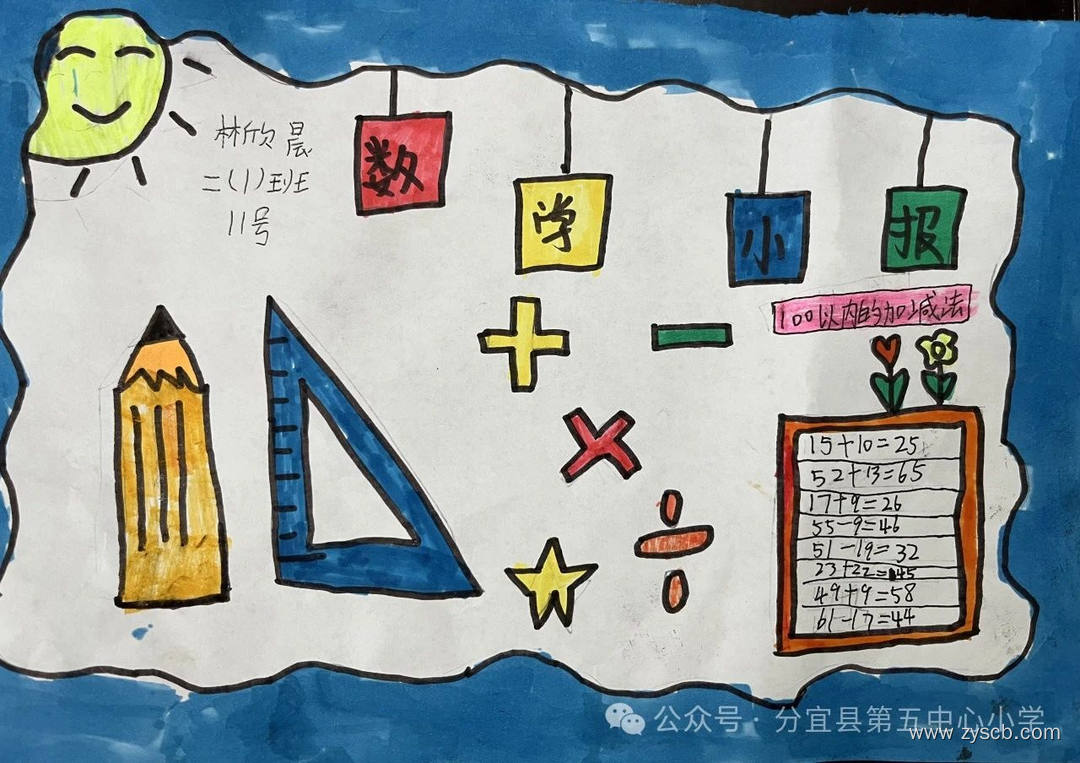 林欣晨
二(1)班
11号
数学小报
100以内的加减法
15+10=25
52+13=65
17+9=26
55-9=46
51-19=32
23+22=45
49+9=58
61-17=44
公众号·分宜县第五中心小学
www.zyscb.com